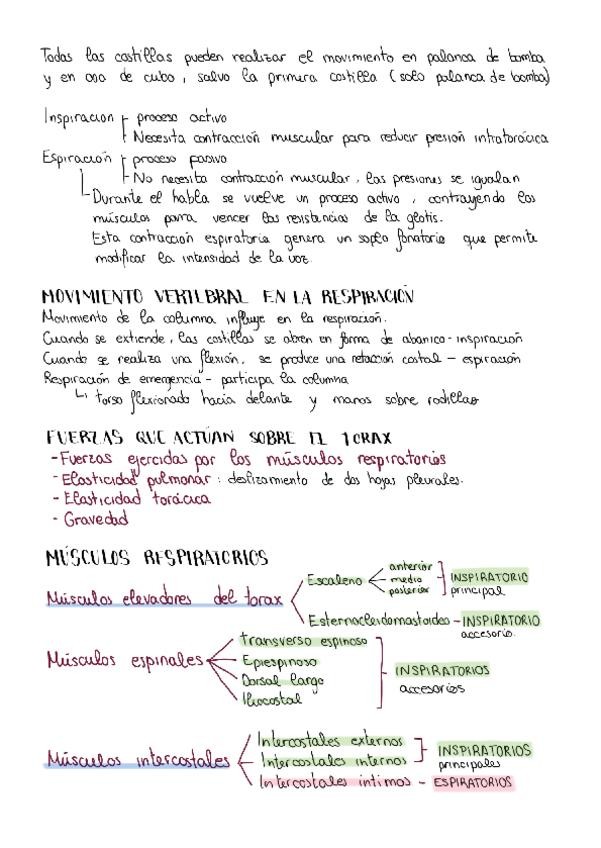 Todas las costillas pueden realizar el movimiento en palanca de bomba
y en asa de cubo, salvo la primera costilla (solo palanca de bomba)
Inspiración - proceso activo
- Necesita contracción muscular para reducir presión intratorácica
Espiración - proceso pasivo
- No necesita contracción muscular, las presiones se igualan
- Durante el habla se vuelve un proceso activo, contrayendo los
músculos para vencer las resistencias de la glotis.
Esta contracción espiratoria genera un soplo fonatorio que permite
modificar la intensidad de la voz.
MOVIMIENTO VERTEBRAL EN LA RESPIRACIÓN
Movimiento de la columna influye en la respiración.
Cuando se extiende, las costillas se abren en forma de abanico - inspiración
Cuando se realiza una flexión, se produce una retracción costal - espiración
Respiración de emergencia - participa la columna
torso flexionado hacia delante y manos sobre rodillas
FUERZAS QUE ACTÚAN SOBRE EL TORAX
- Fuerzas ejercidas por los músculos respiratorios
- Elasticidad pulmonar: deslizamiento de dos hojas pleurales.
- Elasticidad torácica
- Gravedad
MÚSCULOS RESPIRATORIOS
Músculos elevadores del torax
Escaleno
anterior
medio
posterior
INSPIRATORIO
principal
Esternocleidomastoideo - INSPIRATORIO
accesorio.
Músculos espinales
Transverso espinoso
Epiespinoso
Dorsal largo
Iliocostal
INSPIRATORIOS
accesorios
Músculos intercostales
Intercostales externos
Intercostales internos
INSPIRATORIOS
principales
Intercostales intimos - ESPIRATORIOS